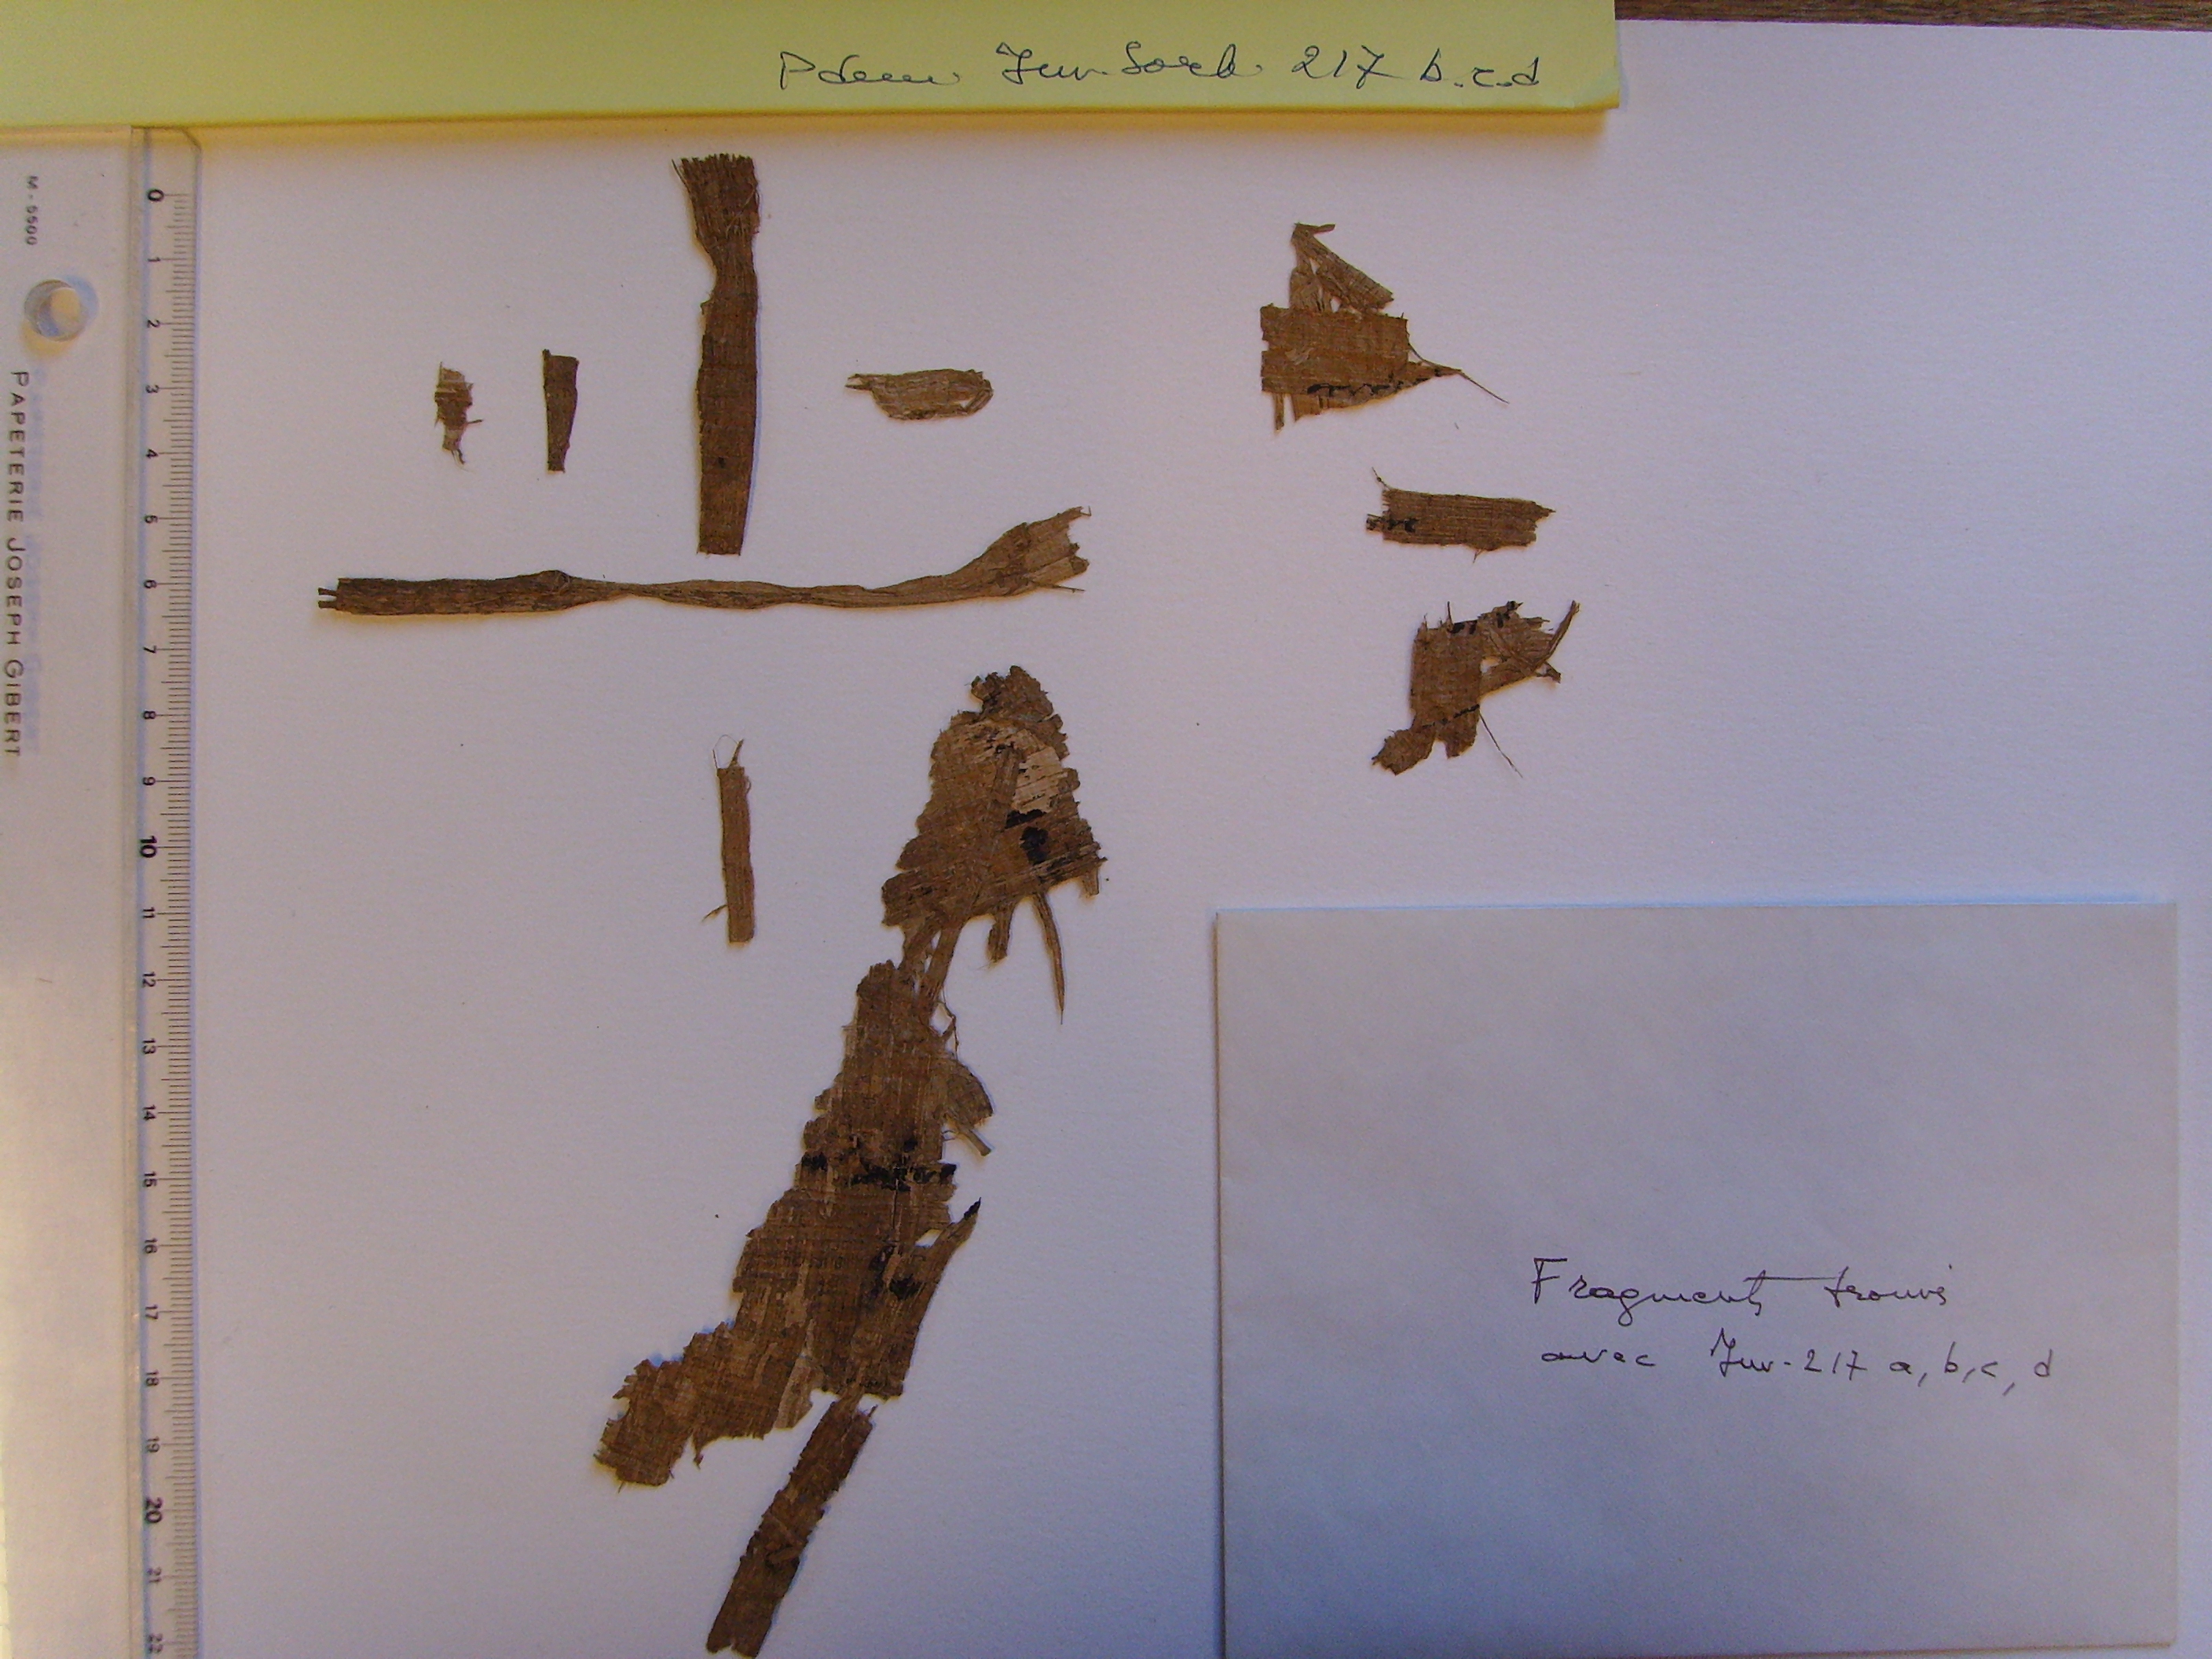 Pdem Inv. Sorb. 217 b.c.d
M-5500
PAPETERIE JOSEPH GIBERT
0
1
2
3
4
5
6
7
8
9
10
11
12
13
14
15
16
17
18
19
20
21
22
Fragments trouvés
avec Inv. 217 a, b, c, d